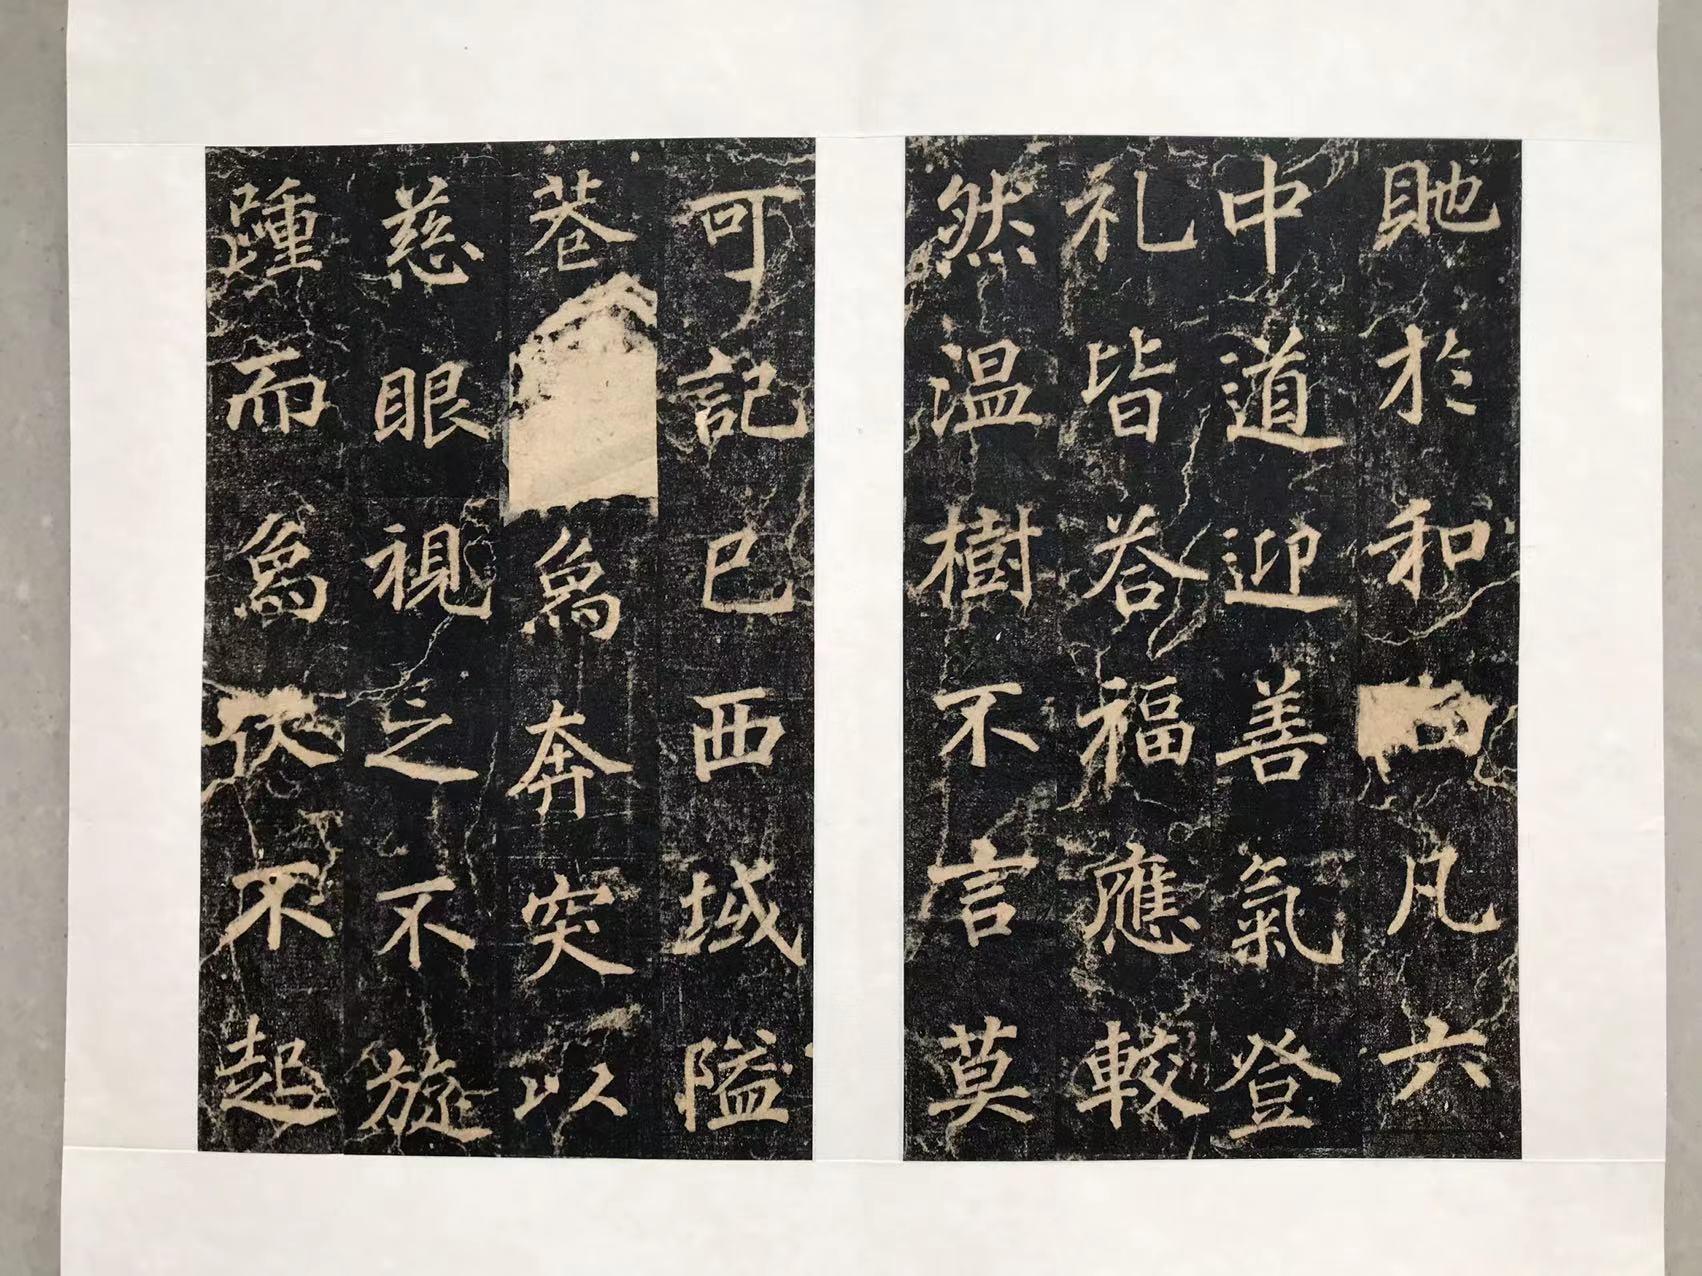 貤於和凡六
中道迎善氣登
礼皆荅福應較
然温樹不言莫
可記已西域隘
巷爲奔突以
慈眼視之不旋
踵而爲伏不起